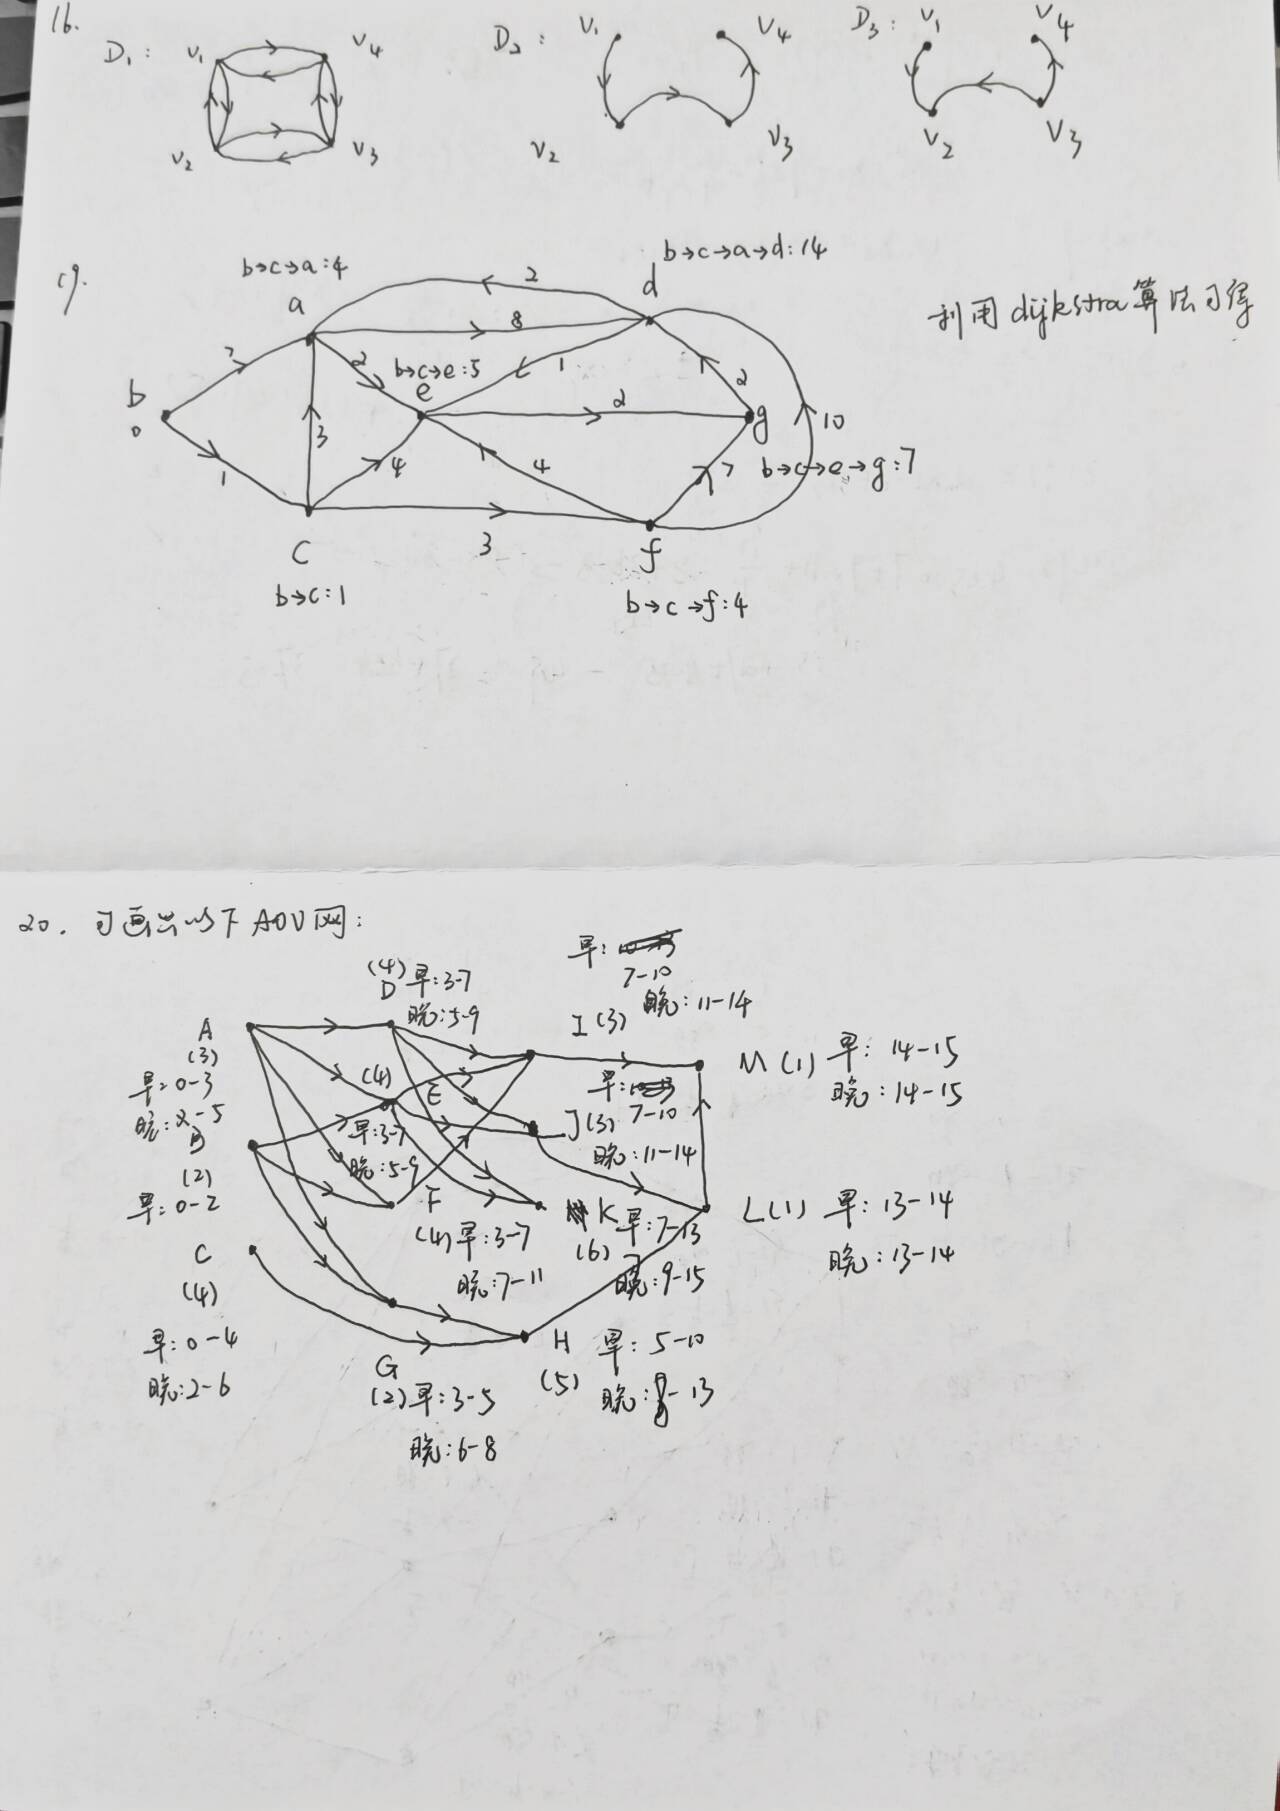 16.
D₁: v₁ v₄
v₂ v₃
D₂: v₁ v₄
v₂ v₃
D₃: v₁ v₄
v₂ v₃
19.
利用dijkstra算法可得
b→c→a:4
a
b→c→a→d:14
d
2
8
b
0
7
2
b→c→e:5
e
1
2
2
g
10
1
3
4
4
7
b→c→e→g:7
c
3
f
b→c:1
b→c→f:4
20. 可画出以下AOV网:
A
(3)
早:0-3
晚:2-5
B
(2)
早:0-2
C
(4)
早:0-4
晚:2-6
(4) 早:3-7
D
晚:5-9
(4)
E
早:3-7
晚:5-9
F
(4) 早:3-7
晚:7-11
G
(2) 早:3-5
晚:6-8
早:
7-10
晚:11-14
I(3)
早:
7-10
J(3)
晚:11-14
K 早:7-13
(6)
晚:9-15
H 早:5-10
(5) 晚:8-13
M(1) 早:14-15
晚:14-15
L(1) 早:13-14
晚:13-14